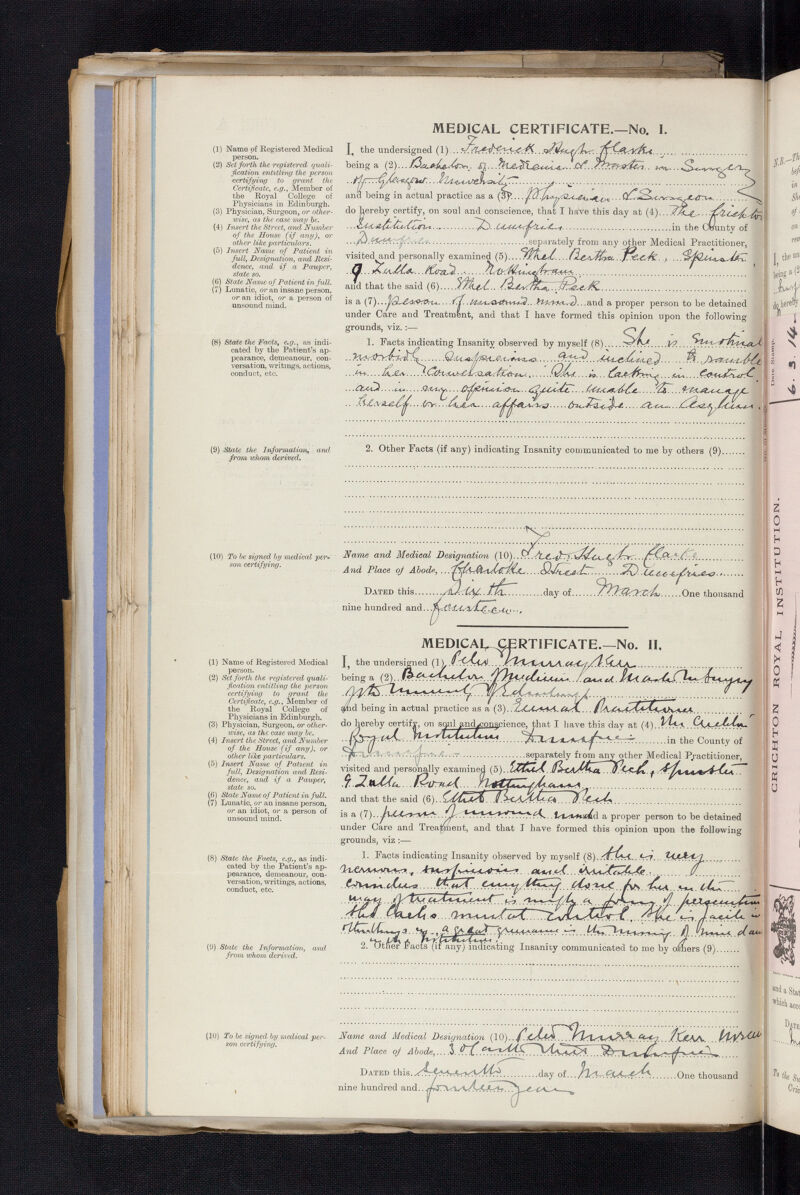 MEDICAL CERTIFICATE.—No. I.
(1) Name of Registered Medical person.
(2) Set forth the registered qualification entitling the person certifying to grant the Certificate, e.g., Member of the Royal College of Physicians in Edinburgh.
(3) Physician, Surgeon, or otherwise, as the case may be.
(4) Insert the Street, and Number of the House (if any), or other like particulars.
(5) Insert Name of Patient in full, Designation, and Residence, and if a Pauper, state so.
(6) State Name of Patient in full.
(7) Lunatic, or an insane person, or an idiot, or a person of unsound mind.
I, the undersigned (1) Frederick Hugh Clarke
being a (2) Bachelor of Medicine & Master in Surgery
of Glasgow University
and being in actual practice as a (3) Physician & Surgeon
do hereby certify, on soul and conscience, that I have this day at (4) The Crichton
Institution Dumfries in the County of
Dumfries separately from any other Medical Practitioner,
visited and personally examined (5) Ethel Bertha Peck, Spinster
9 Zulla Road Nottingham
and that the said (6) Ethel Bertha Peck
is a (7) person of unsound mind and a proper person to be detained
under Care and Treatment, and that I have formed this opinion upon the following
grounds, viz. :—
(8) State the Facts, e.g., as indicated by the Patient's appearance, demeanour, conversation, writings, actions, conduct, etc.
1. Facts indicating Insanity observed by myself (8) She is Emotional
morbidly suspicious and inclined to ramble
in her conversation. She is lacking in control
and in my opinion quite unable to manage
herself or her affairs outside an Asylum.
(9) State the Information, and from whom derived.
2. Other Facts (if any) indicating Insanity communicated to me by others (9)
(10) To be signed by medical person certifying.
Name and Medical Designation (10) Fred Hugh Clarke
And Place of Abode, Charlotte Street Dumfries
DATED this Sixth day of March One thousand
nine hundred and fourteen.
MEDICAL CERTIFICATE.—No. II.
(1) Name of Registered Medical person.
(2) Set forth the registered qualification entitling the person certifying to grant the Certificate, e.g., Member of the Royal College of Physicians in Edinburgh.
(3) Physician, Surgeon, or otherwise, as the case may be.
(4) Insert the Street, and Number of the House (if any), or other like particulars.
(5) Insert Name of Patient in full, Designation, and Residence, and if a Pauper, state so.
(6) State Name of Patient in full.
(7) Lunatic, or an insane person, or an idiot, or a person of unsound mind.
I, the undersigned (1) Peter Murray Kerr
being a (2) Bachelor of Medicine and Master in Surgery
of the University of Edinburgh
and being in actual practice as a (3) General Practitioner
do hereby certify, on soul and conscience, that I have this day at (4) The Crichton
Royal Institution Dumfries in the County of
Dumfries separately from any other Medical Practitioner,
visited and personally examined (5) Ethel Bertha Peck, Spinster
9 Zulla Road Nottingham
and that the said (6) Ethel Bertha Peck
is a (7) person of unsound mind and a proper person to be detained
under Care and Treatment, and that I have formed this opinion upon the following
grounds, viz :—
(8) State the Facts, e.g., as indicated by the Patient's appearance, demeanour, conversation, writings, actions, conduct, etc.
1. Facts indicating Insanity observed by myself (8) She is very
nervous, suspicious and irritable.
Considers that any thing done for her in the
way of treatment is simply a form of persecution
She lacks mental control. She is facile in
other things eg. a great grievance is the
in the Institution.
(9) State the Information, and from whom derived.
2. Other Facts (if any) indicating Insanity communicated to me by others (9)
(10) To be signed by medical person certifying.
Name and Medical Designation (10) Peter Murray Kerr
And Place of Abode, 3 Castle Street Dumfries
DATED this Seventh day of March One thousand
nine hundred and fourteen years
CRICHTON ROYAL INSTITUTION.
Date Stamp.
6. 3. 14